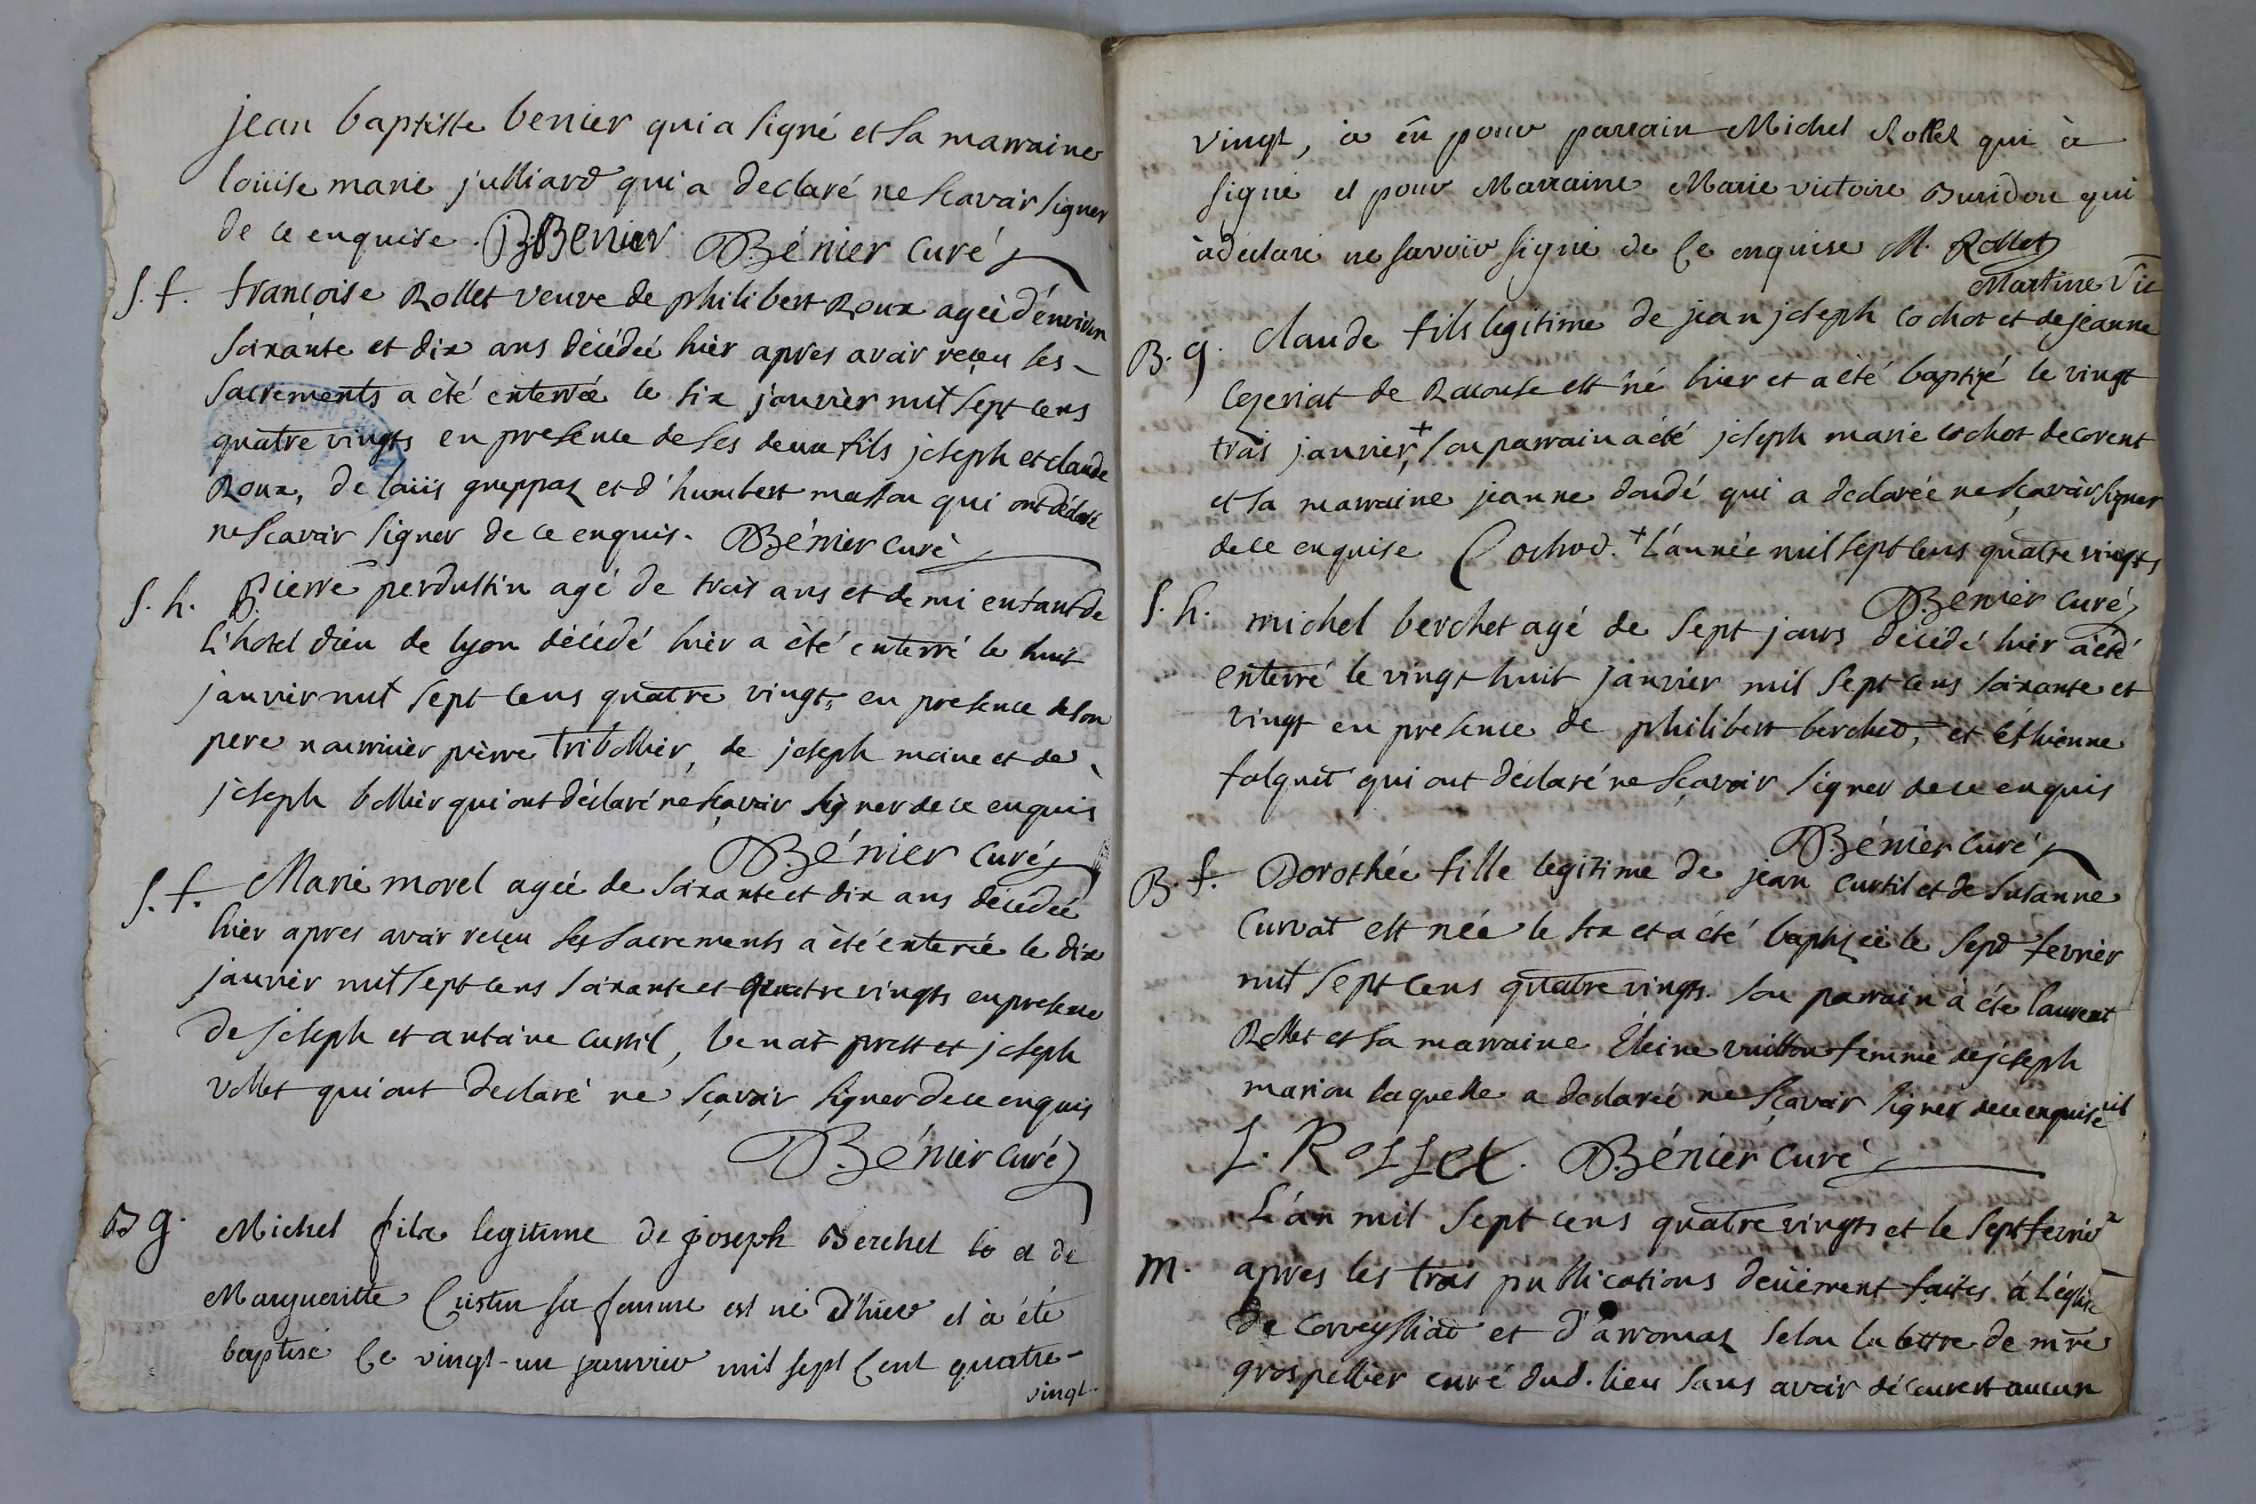 jean baptiste benier qui a signé et sa marraine
loüise marie julliard qui a declaré ne scavoir signer
de ce enquise. JB Benier Bénier curé
S. f. françoise Rollet veuve de philibert Roux ageé d'environ
soixante et dix ans décédeé hier apres avoir reçeu les
sacrements a été enterrée le six janvier mil sept cens
quatre vingts en presence de ses deux fils joseph et claude
Roux, de loüis greppaz et d'humbert masson qui ont déclaré
ne scavoir signer de ce enquis. Bénier curé
S. h. Pierre perdustin agé de trois ans et demi enfant de
l'hotel dieu de lyon décédé hier a été enterré le huit
janvier mil sept cens quatre vingts en presence de son
pere nourricier pierre tribollier, de joseph moine et de
joseph bollier qui ont déclaré ne sçavoir signer de ce enquis
Bénier curé
S. f. Marie morel ageé de soixante et dix ans décédeé
hier apres avoir reçeu ses sacrements a été enterreé le dix
janvier mil sept cens soixante et quatre vingts en presence
de joseph et antoine curtil, benoit prost et joseph
vollet qui ont declaré ne sçavoir signer de ce enquis
Bénier curé
B g. Michel fils legitime de joseph Berchet et de
Margueritte sa femme est né d'hier et à été
baptisé le vingt-un janvier mil sept cent quatre-
vingt
vingt, à eû pour parrain Michel Rollet qui à
signé et pour Marraine Marie victoire Buridon qui
à declaré ne savoir signé de ce enquise M. Rollet
Martine Vic
B. g. claude fils legitime de jean joseph cochot et de jeanne
cezeriat de Racouse est né hier et a été baptizé le vingt
trois janvier + son parrain a été joseph marie cochot de corent
et sa marraine jeanne dondé qui a declarée ne sçavoir signer
de ce enquise Cochod. + L'année mil sept cens quatre vingts
Benier curé
S. h. michel berchet agé de sept jours décédé hier a été
enterré le vingt huit janvier mil sept cens soixante et
vingt en presence de philibert berched, et éthienne
folquet qui ont déclaré ne sçavoir signer de ce enquis
Bénier curé
B. f. Dorothée fille legitime de jean curtil et de susanne
curvat est née le six et a été baptizeé le sept fevrier
mil sept cens quatre vingts. son parrain a été laurent
Rollet et sa marraine vuitton femme de joseph
marion laquelle a declareé ne sçavoir signer de ce enquise
L. Rollet. Bénier curé
L'an mil sept cens quatre vingts et le sept fevrier
m. apres les trois publications deüement faites à l'église
de corveyssiat et d'arromaz selon la lettre de mre
grospellier curé dud. lieu sans avoir découvert aucun